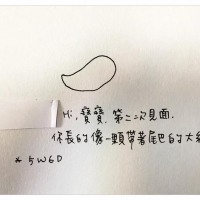 Hi, 寶寶, 第二次見面,
你長的像一顆帶著尾巴的大
* 5W6D